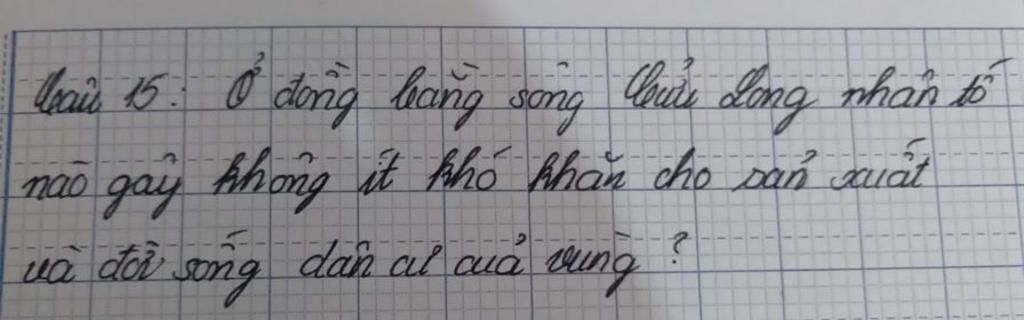 Câu 15: Ở đồng bằng sông Cửu Long nhân tố
nào gây không ít khó khăn cho sản xuất
và đời sống dân cư của vùng?